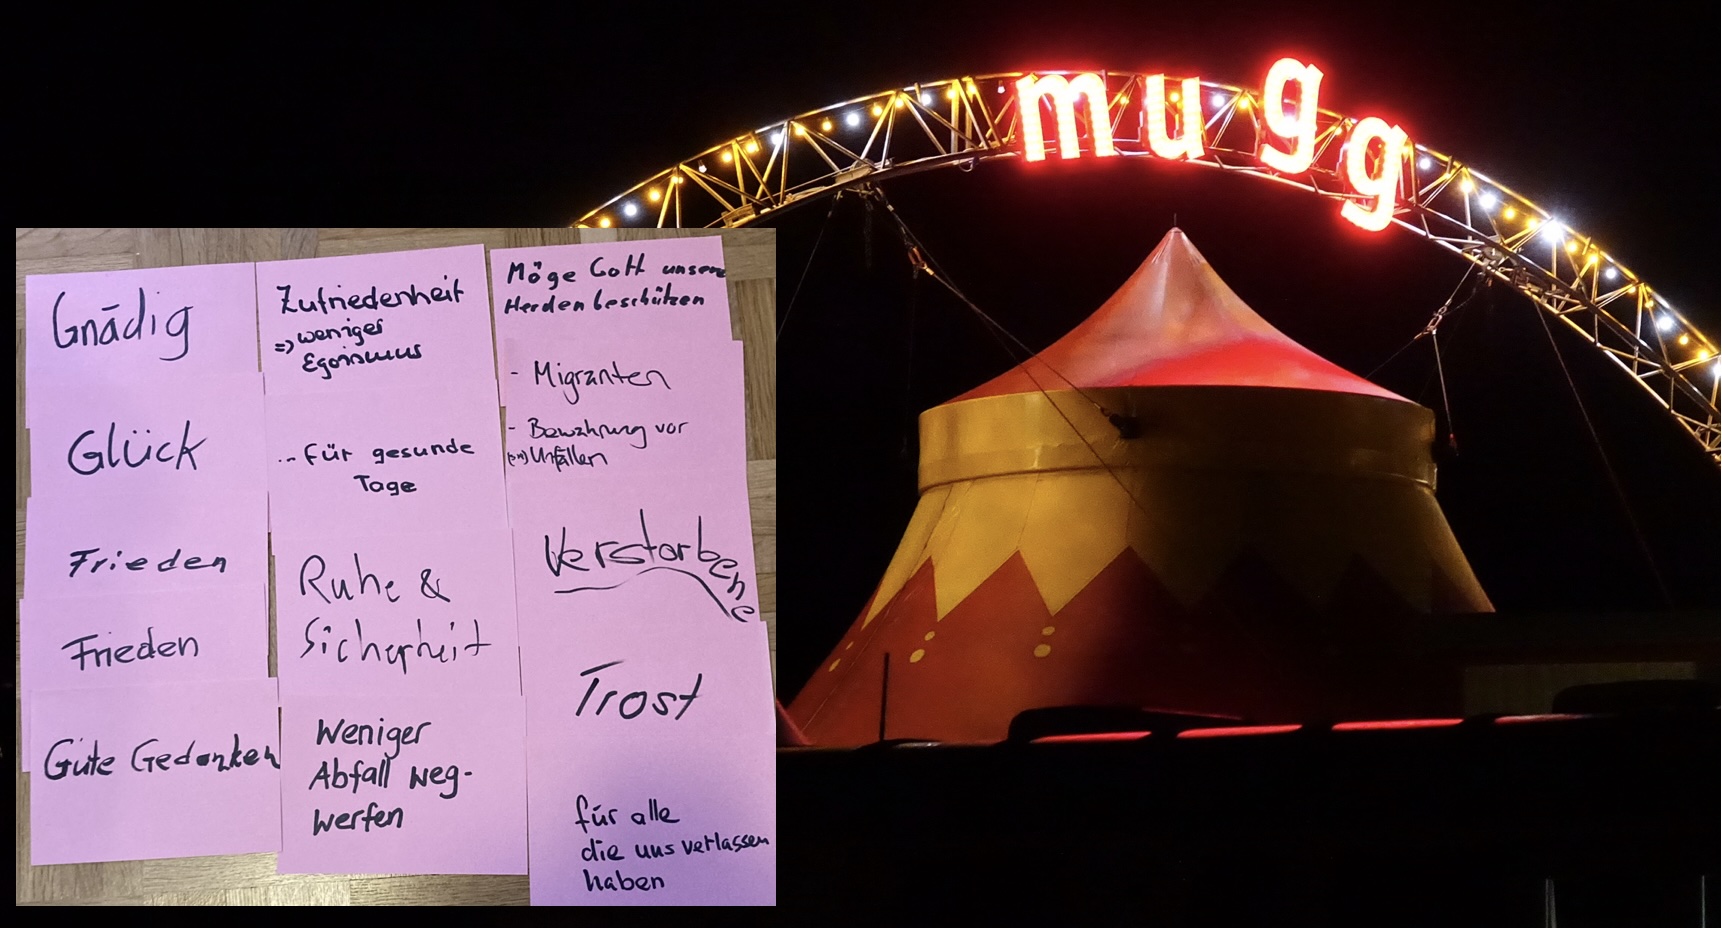 mugg
Gnädig
Glück
Frieden
Frieden
Gute Gedanken
Zufriedenheit
=> weniger
Egoismus
... für gesunde
Tage
Ruhe &
Sicherheit
Weniger
Abfall weg-
werfen
Möge Gott unsere
Herden beschützen
- Migranten
- Bewahrung vor
Unfällen
Verstorbene
Trost
für alle
die uns verlassen
haben